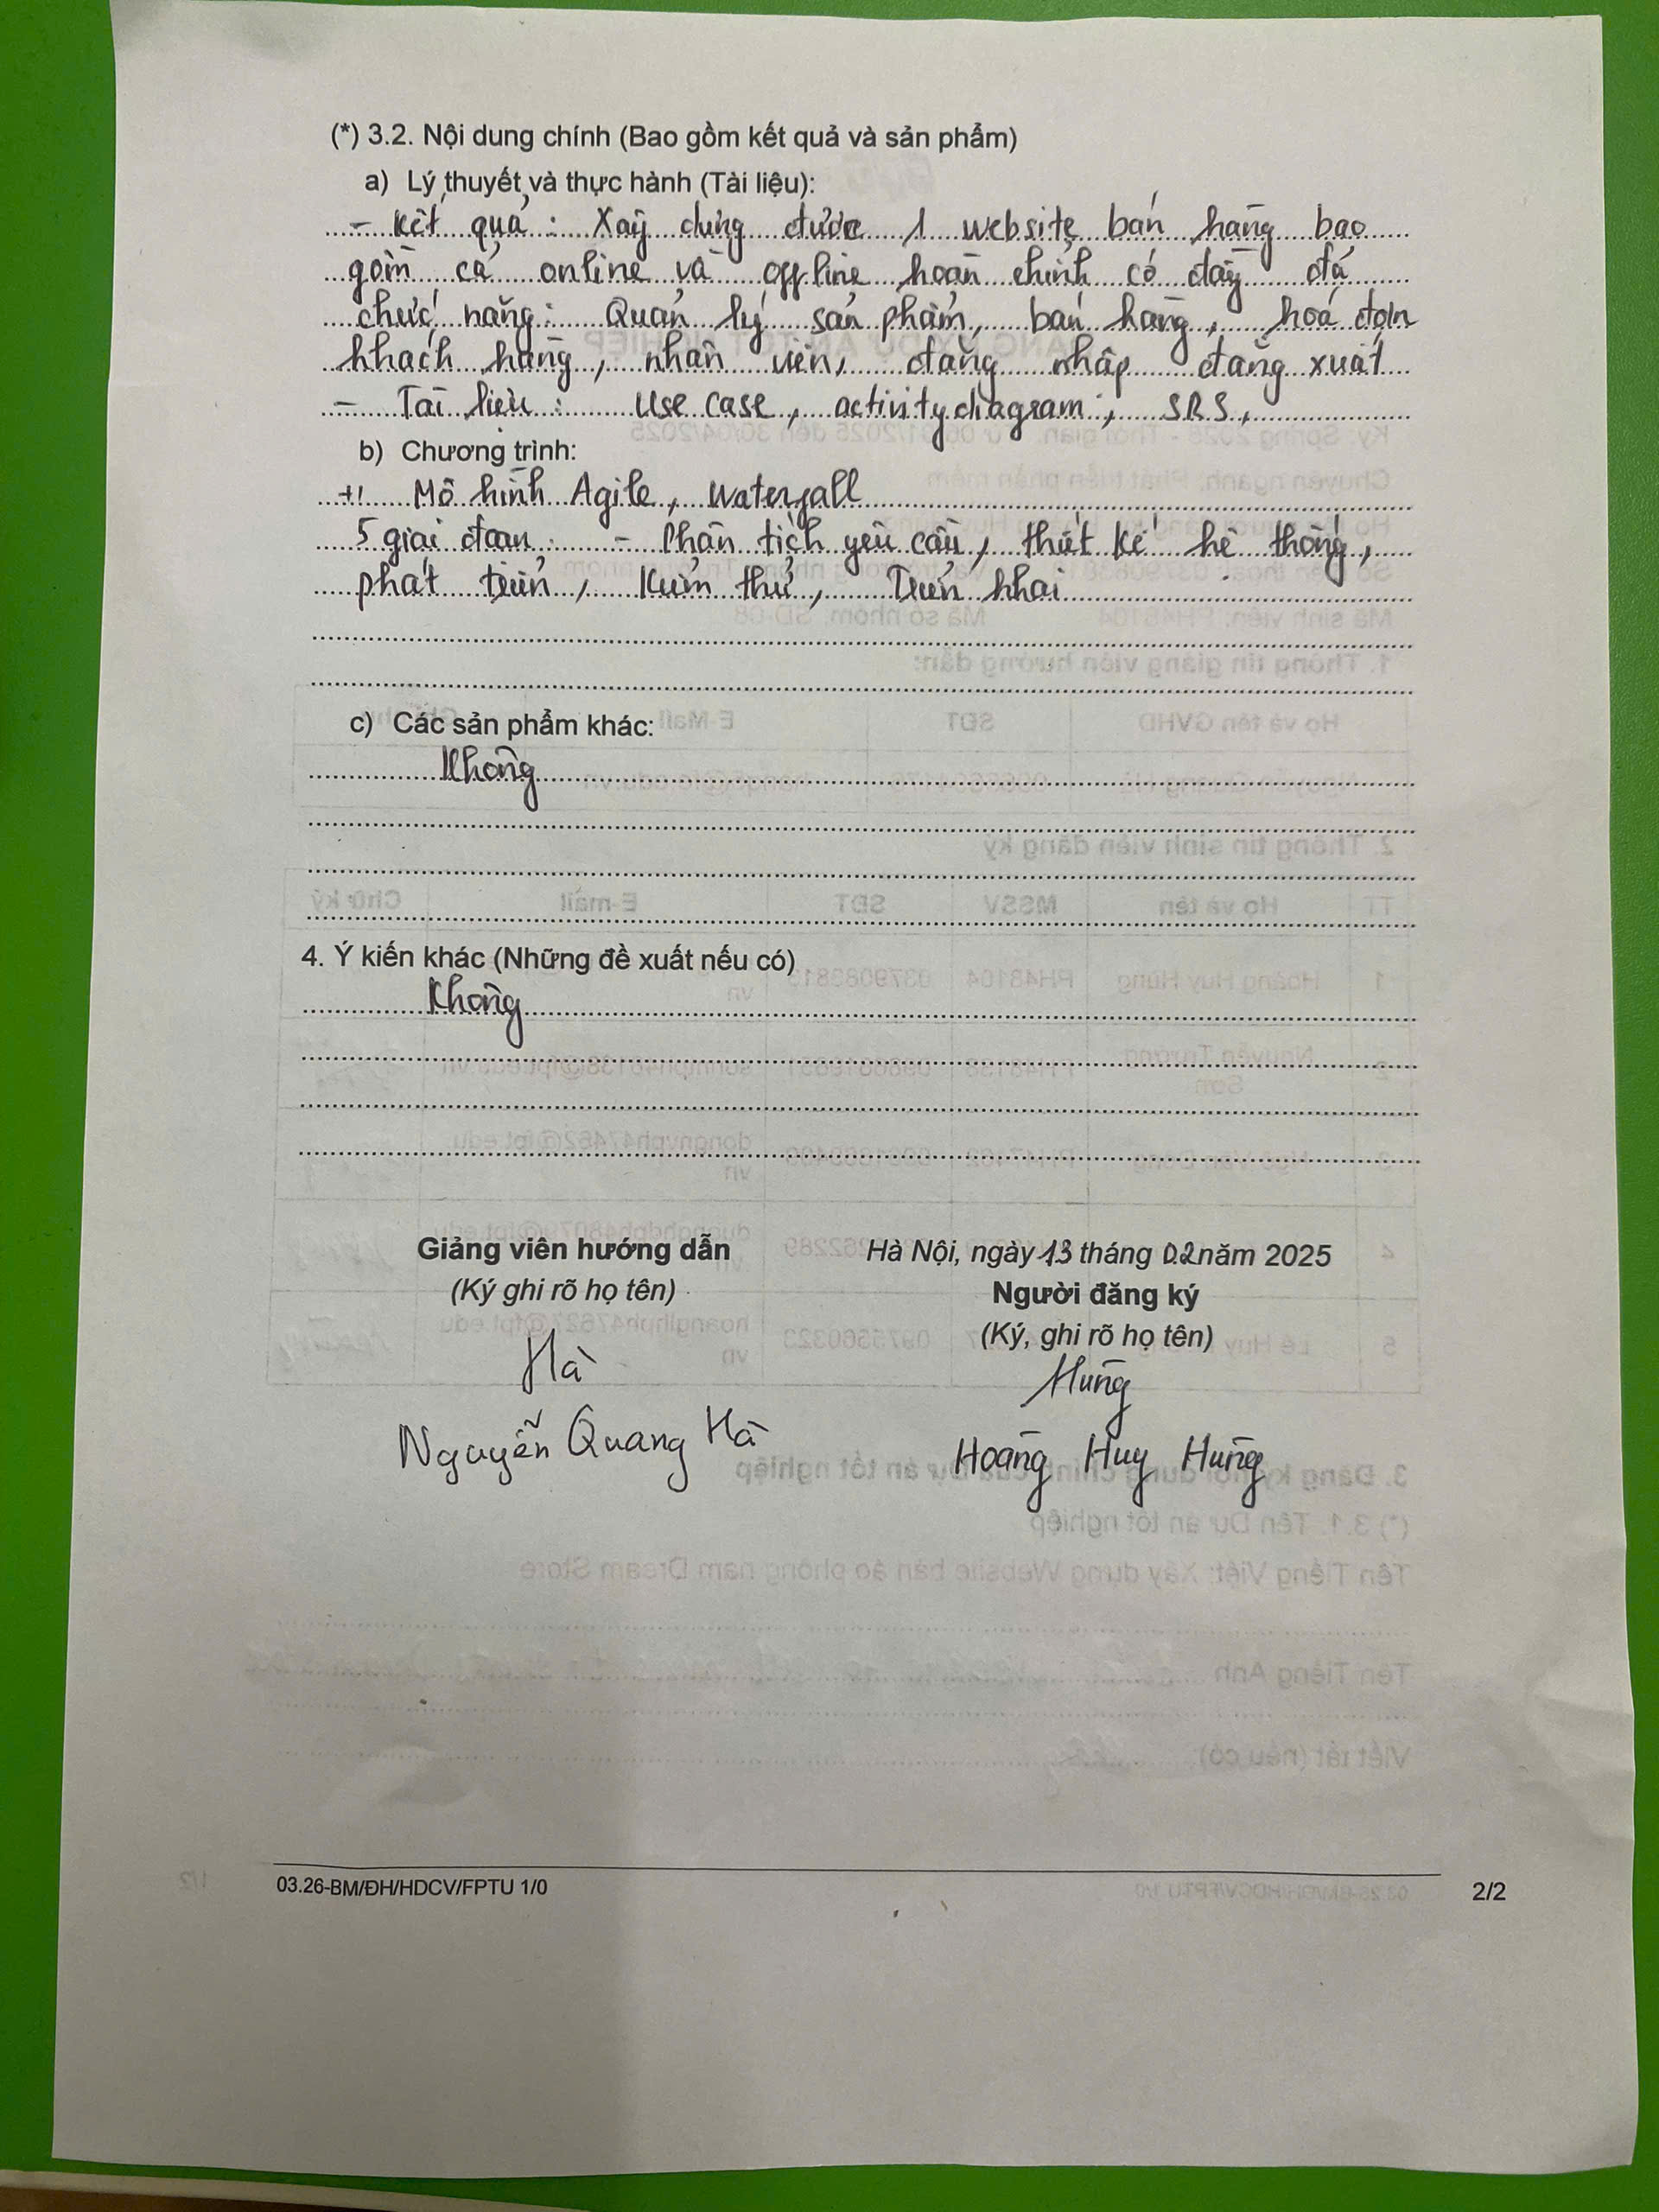 (*) 3.2. Nội dung chính (Bao gồm kết quả và sản phẩm)
a) Lý thuyết và thực hành (Tài liệu):
- Kết quả : Xây dựng được 1 website bán hàng bao
gồm cả online và offline hoàn chỉnh có đầy đủ
chức năng : Quản lý sản phẩm, bán hàng, hoá đơn
khách hàng, nhân viên, đăng nhập đăng xuất
- Tài liệu : Use case, activity diagram, SRS,
b) Chương trình:
+, Mô hình Agile, waterfall
5 giai đoạn : - Phân tích yêu cầu, thiết kế hệ thống,
phát triển, Kiểm thử, Triển khai
c) Các sản phẩm khác:
Không
4. Ý kiến khác (Những đề xuất nếu có)
Không
Giảng viên hướng dẫn
(Ký ghi rõ họ tên)
Hà
Nguyễn Quang Hà
Hà Nội, ngày 13 tháng 02 năm 2025
Người đăng ký
(Ký, ghi rõ họ tên)
Hùng
Hoàng Huy Hùng
03.26-BM/ĐH/HDCV/FPTU 1/0
2/2